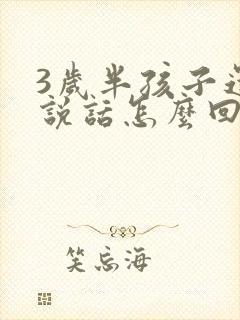 3歲半孩子還
說話怎麼回
笑忘海